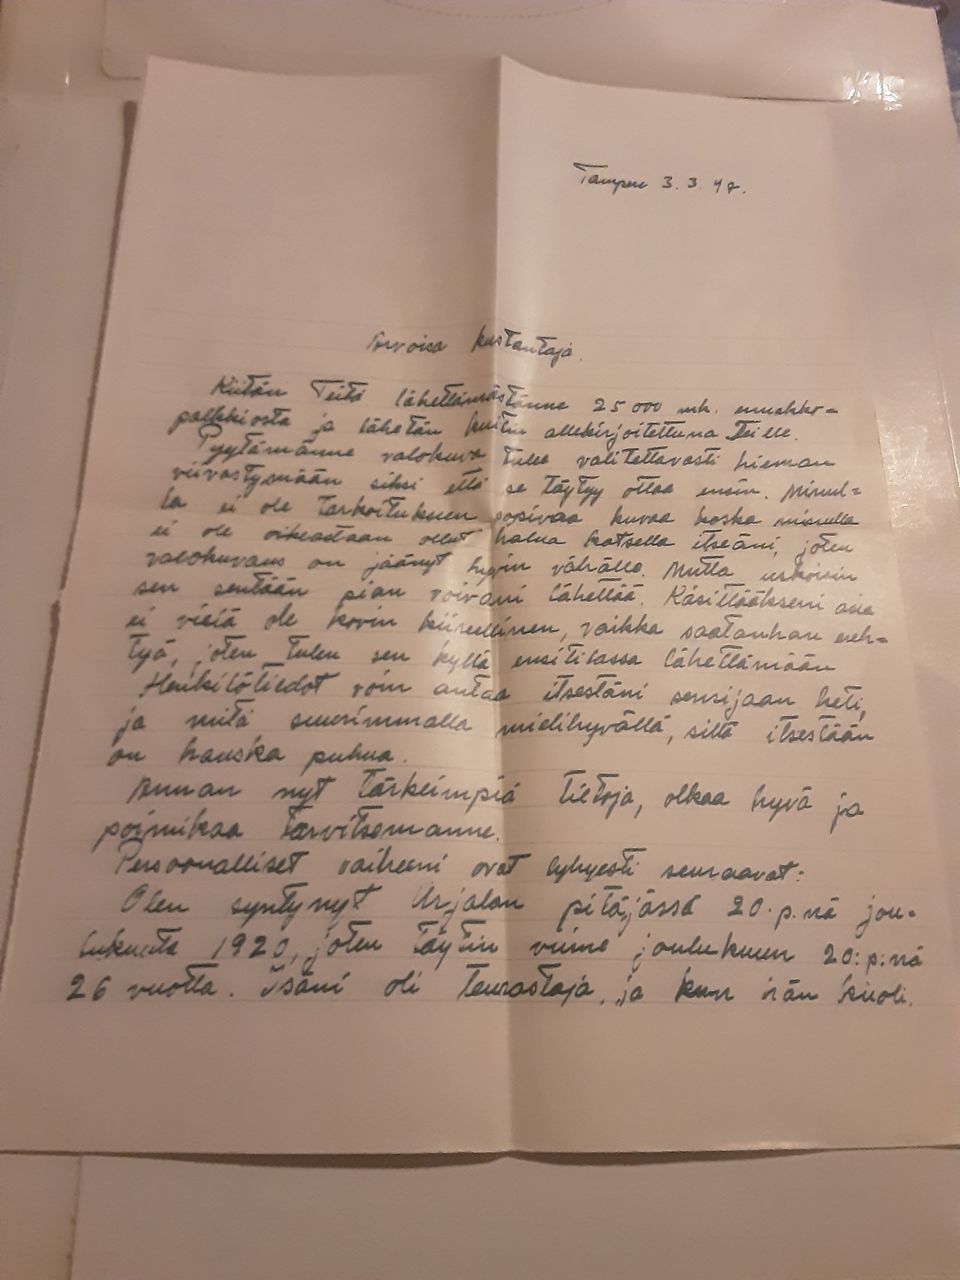 Tampere 3.3.47.
Arvoisa kustantaja.
Kiitän Teitä lähettämästänne 25000 mk. ennakko-
palkkiosta ja lähetän kuitin allekirjoitettuna Teille.
Pyytämänne valokuva tulee valitettavasti hieman
viivästymään siksi että se täytyy ottaa ensin. Minul-
la ei ole tarkoitukseen sopivaa kuvaa koska minulla
ei ole oikeastaan ollut halua katsella itseäni, joten
valokuvaus on jäänyt hyvin vähälle. Mutta uskoisin
sen sentään pian voivani lähettää. Käsittääkseni asia
ei vielä ole kovin kiireellinen, vaikka saatanhan ereh-
tyä, joten tulen sen kyllä ensitilassa lähettämään
Henkilötiedot voin antaa itsestäni sensijaan heti,
ja mitä suurimmalla mielihyvällä, sillä itsestään
on hauska puhua.
Annan nyt tärkeimpiä tietoja, olkaa hyvä ja
poimikaa tarvitsemanne.
Persoonalliset vaiheeni ovat lyhyesti seuraavat:
Olen syntynyt Urjalan pitäjässä 20.p.nä jou-
lukuuta 1920, joten täytin viime joulukuun 20:p:nä
26 vuotta. Isäni oli teurastaja, ja kun hän kuoli.